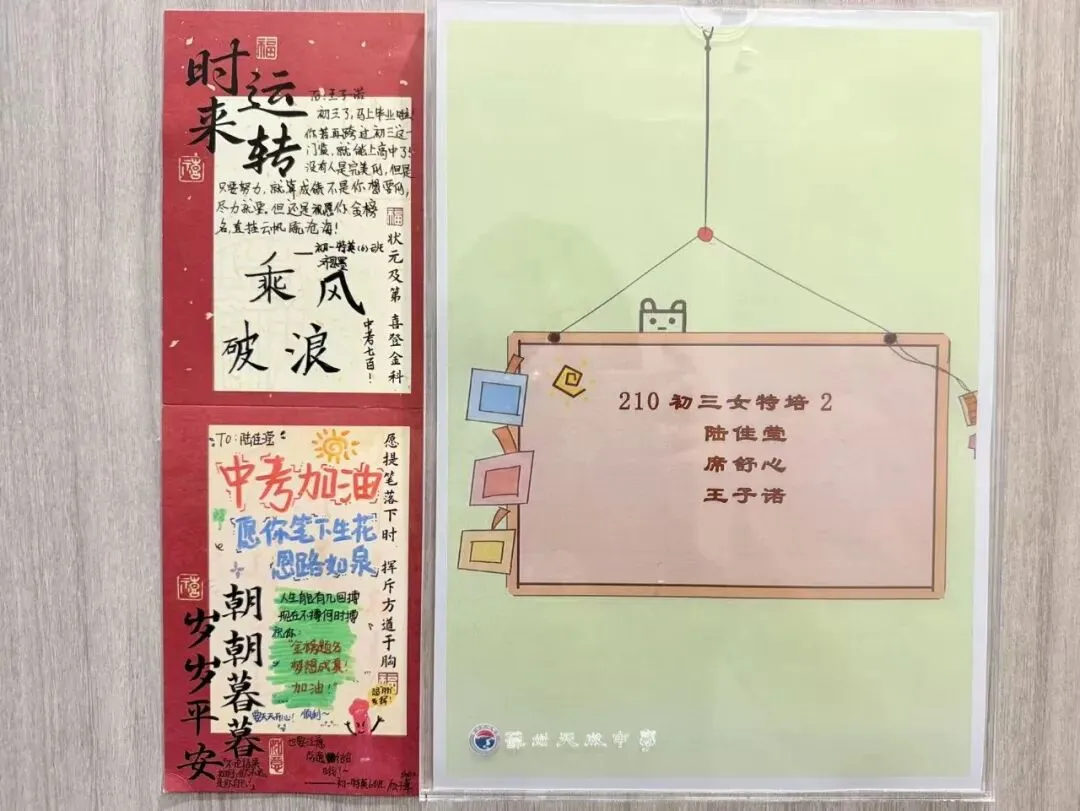 福
时来
运转
禧
To:王子诺
初三了,马上毕业啦!
你若再跨过初三这一
门槛,就能上高中了!
没有人是完美的,但是
只要努力,就算成绩不是你想要的,
尽力就是。但还是祝愿你 金榜
名,直挂云帆济沧海!
——初一特英(6)班
乘风
破浪
福
状元及第 喜登金科
中考七百!
To:陆佳滢
中考加油
愿你笔下生花
思路如泉
人生能有几回搏
现在不搏何时搏
祝你:
"金榜题名
梦想成真!
加油!"
要天天开心!顺利~
愿提笔落下时 挥斥方遒于胸
福
禧
朝朝暮暮
岁岁平安
210 初三女特培 2
陆佳莹
席舒心
王子诺